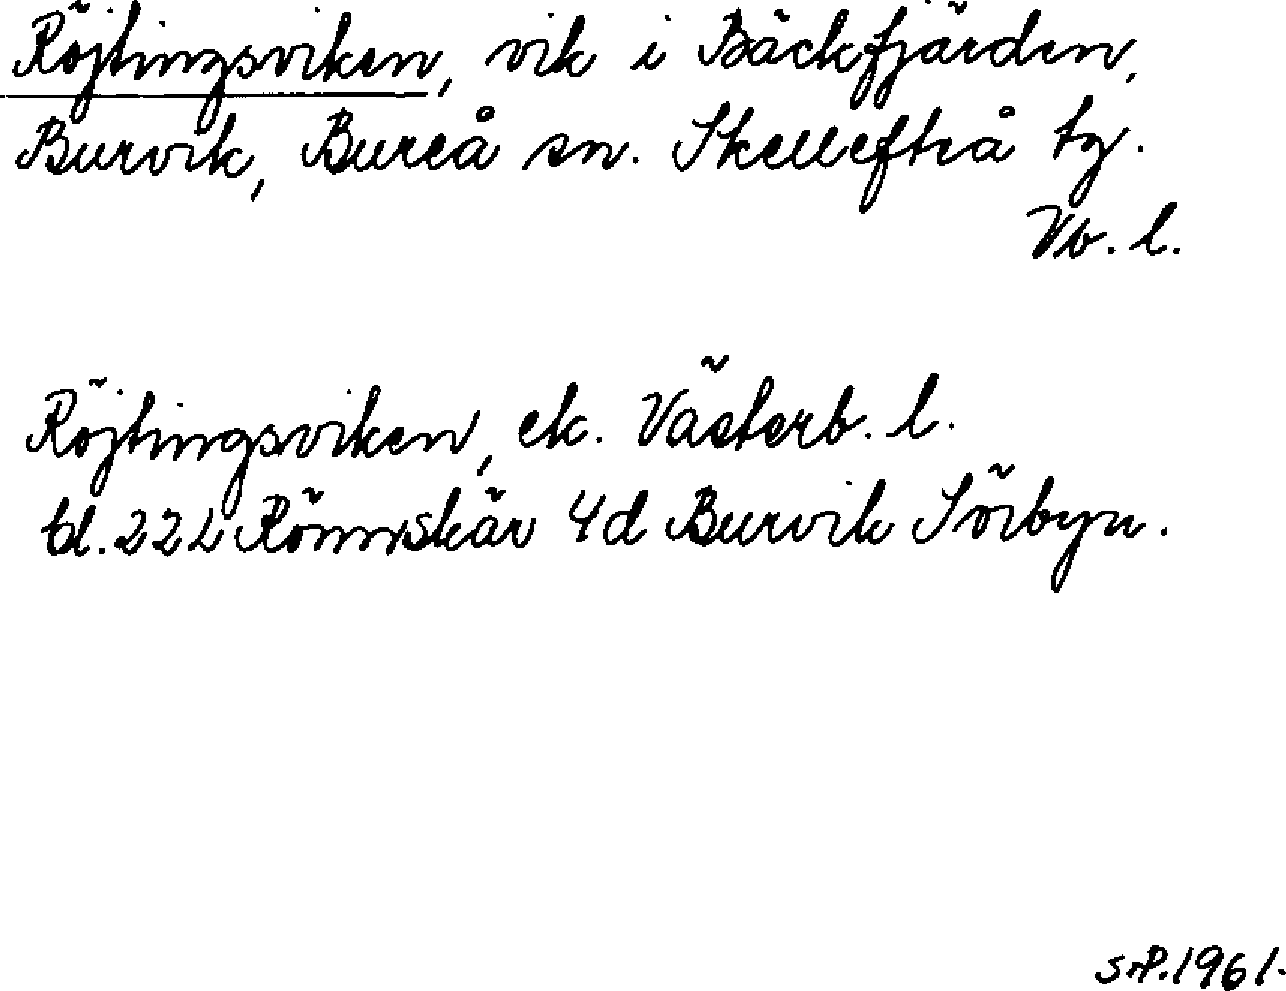 Röjtingsviken, vik i Bäckfjärden,
Burvik, Bureå sn. Skellefteå tg.
Vb. l.
Röjtingsviken, ek. Västerb. l.
bl. 22L Rönnskär 4d Burvik Sörbyn.
S.P. 1961.